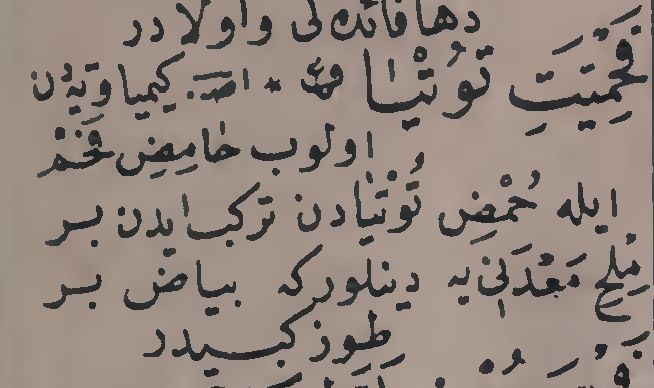 دها فائده‌لی واولادر
فَحْمِيَّتِ تُوتْيَا كيمياويه‌دن
اولوب حَامِضِ فَحْمْ
ايله حُمْضِ تُوتْيَادن تركب ايدن بر
مِلْحِ مَعْدَنِی‌يه دينلوركه بياض بر
طوز كبيدر